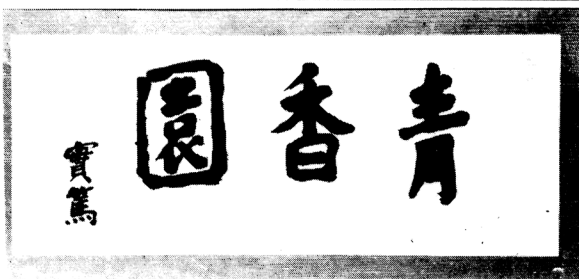 青香園
實篤